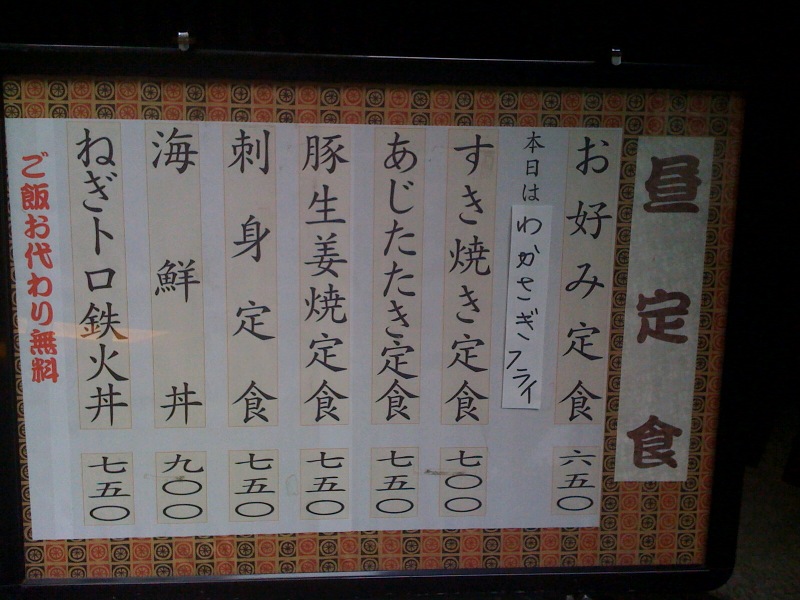 昼定食
お好み定食 六五〇
本日は わかさぎフライ
すき焼き定食 七〇〇
あじたたき定食 七五〇
豚生姜焼定食 七五〇
刺身定食 七五〇
海鮮丼 九〇〇
ねぎトロ鉄火丼 七五〇
ご飯お代わり無料